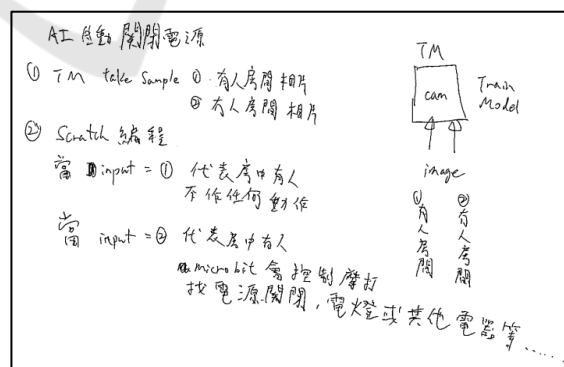 AI 自動關閉電源
① TM take sample ①. 有人房間相片
② 有人房間相片
② Scratch 編程
當 input = ① 代表房中有人
不作任何動作
當 input = ② 代表房中有人
microbit 會控制摩打
找電源關閉,電燈或其他電器等......
TM
cam
Train Model
image
① 有人房間
② 有人房間